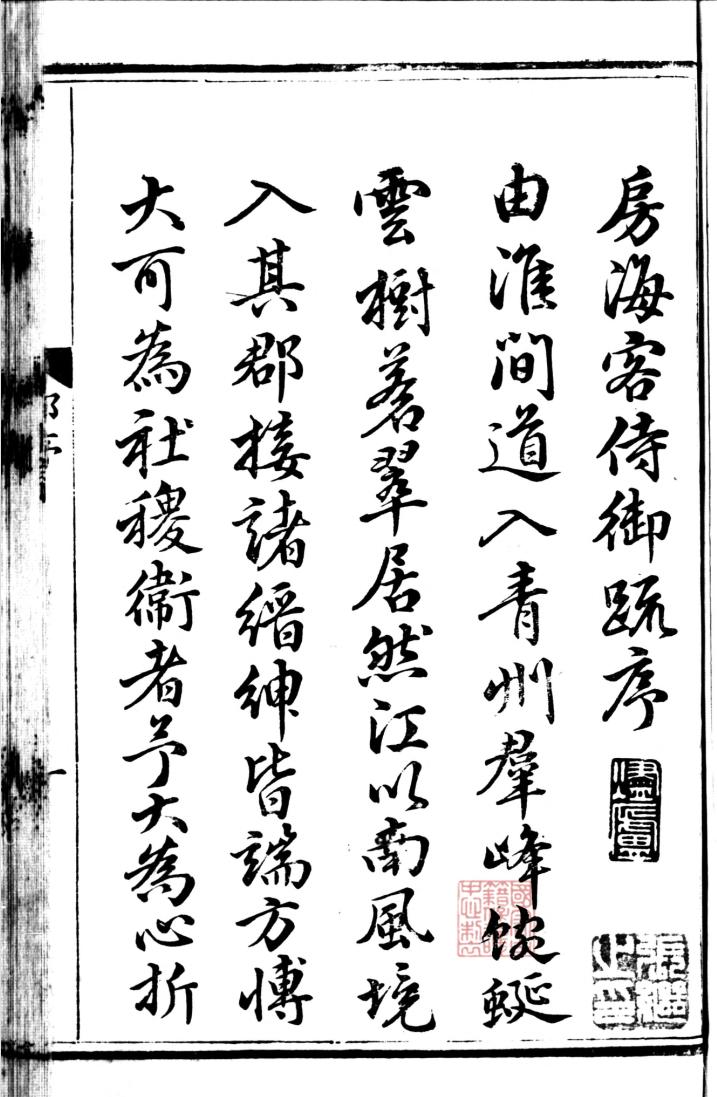 房海客侍御䟽序
由淮間道入青州羣峰蜿蜒
雲樹蒼翠居然江以南風境
入其郡接諸縉紳皆端方博
大可為社稷衞者予大為心折
一
張繼之印